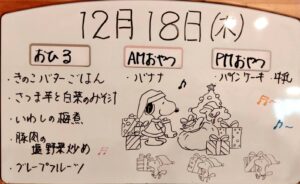 12月18日(木)
おひる
・きのこバターごはん
・さつま芋と白菜のみそ汁
・いわしの梅煮
・豚肉の
塩野菜炒め
・グレープフルーツ
AMおやつ
・バナナ
PMおやつ
・パインケーキ・牛乳